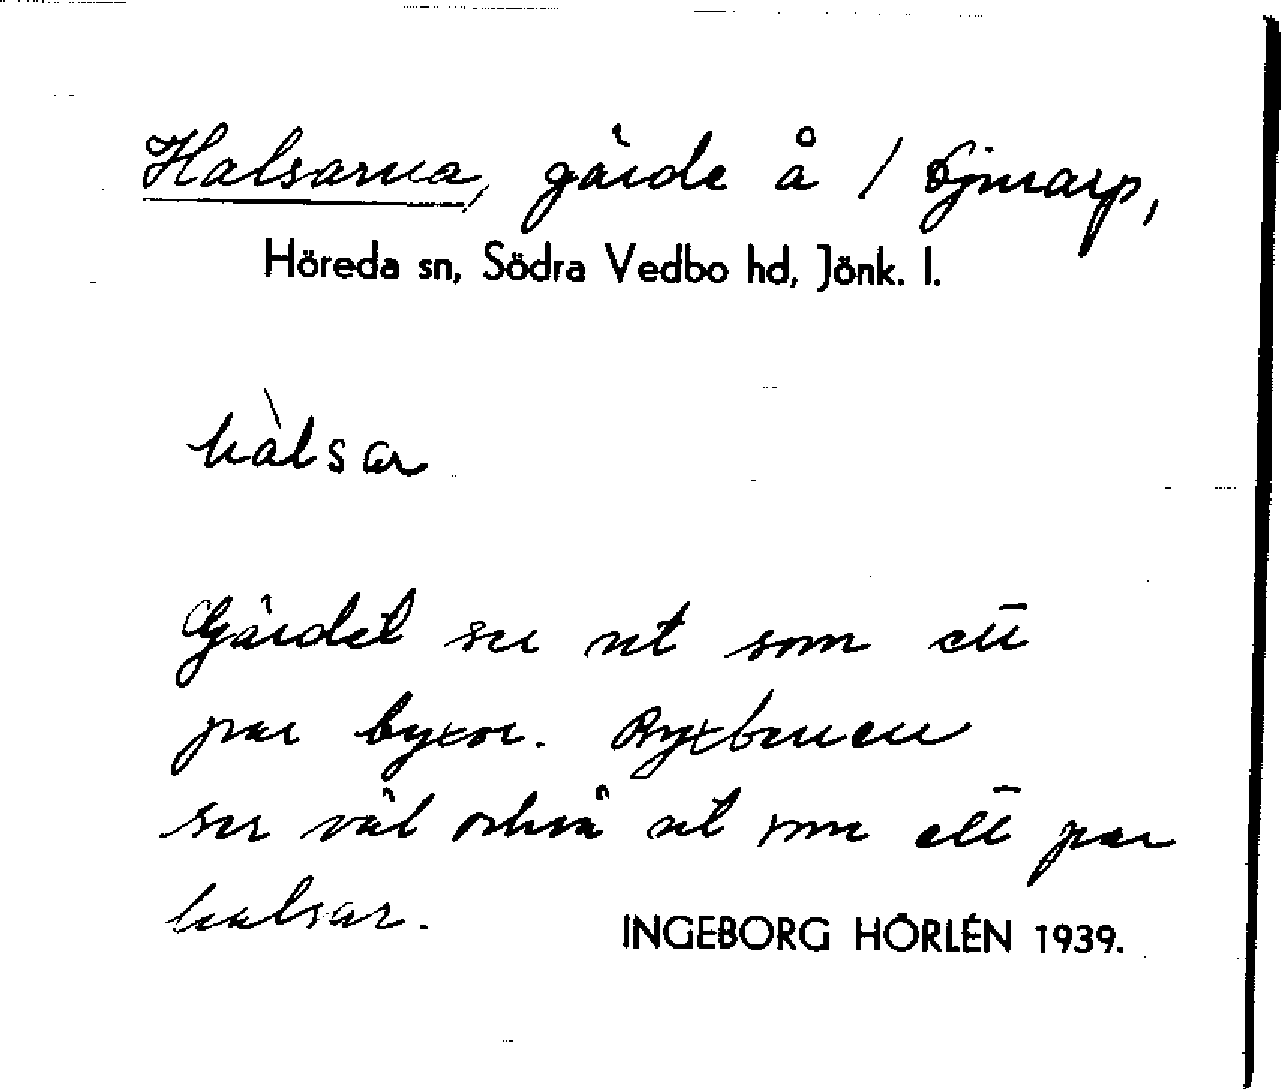 Halsarna, gärde å / Djurarp,
Höreda sn, Södra Vedbo hd, Jönk. l.
hàlsar
Gärdet ser ut som ett
par byxor. Byxbenen
ser väl också ut som ett par
halsar.
INGEBORG HÖRLÉN 1939.